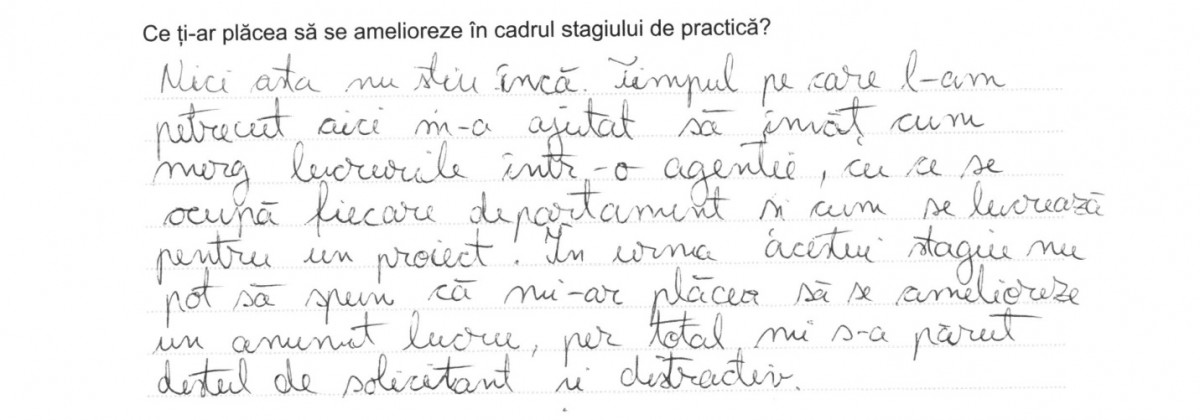 Ce ți-ar plăcea să se amelioreze în cadrul stagiului de practică?
Nici asta nu știu încă. Timpul pe care l-am
petrecut aici m-a ajutat să învăț cum
merg lucrurile într-o agenție, cu ce se
ocupă fiecare departament și cum se lucrează
pentru un proiect. În urma acestui stagiu nu
pot să spun că mi-ar plăcea să se amelioreze
un anumit lucru, per total mi s-a părut
destul de solicitant și distractiv.